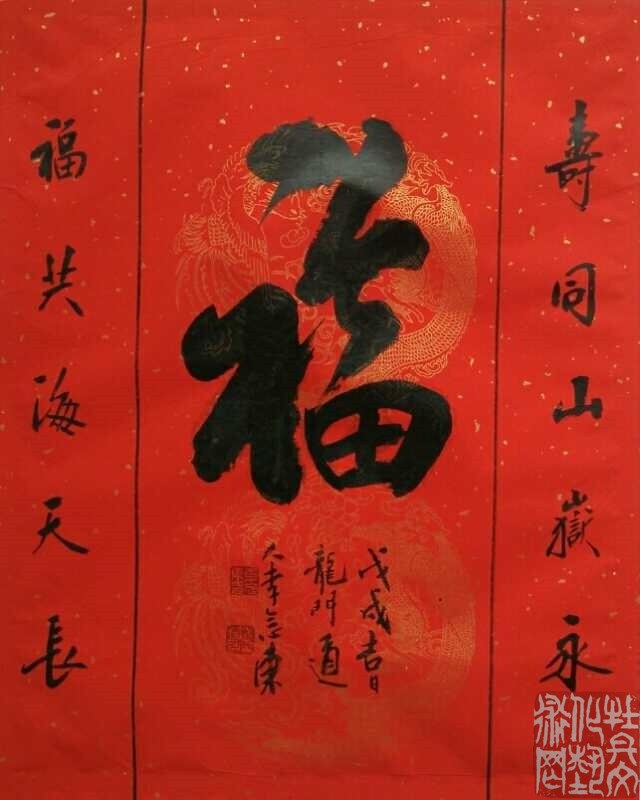 壽同山嶽永
福
福共海天長
戊戌吉日
龍門道
人李志東